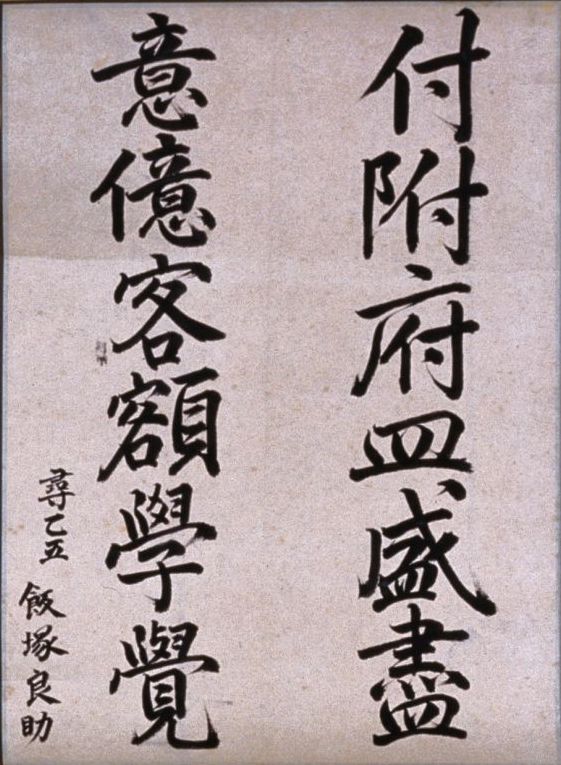 付附府皿盛盡
意億客額學覺
尋乙五
飯塚良助